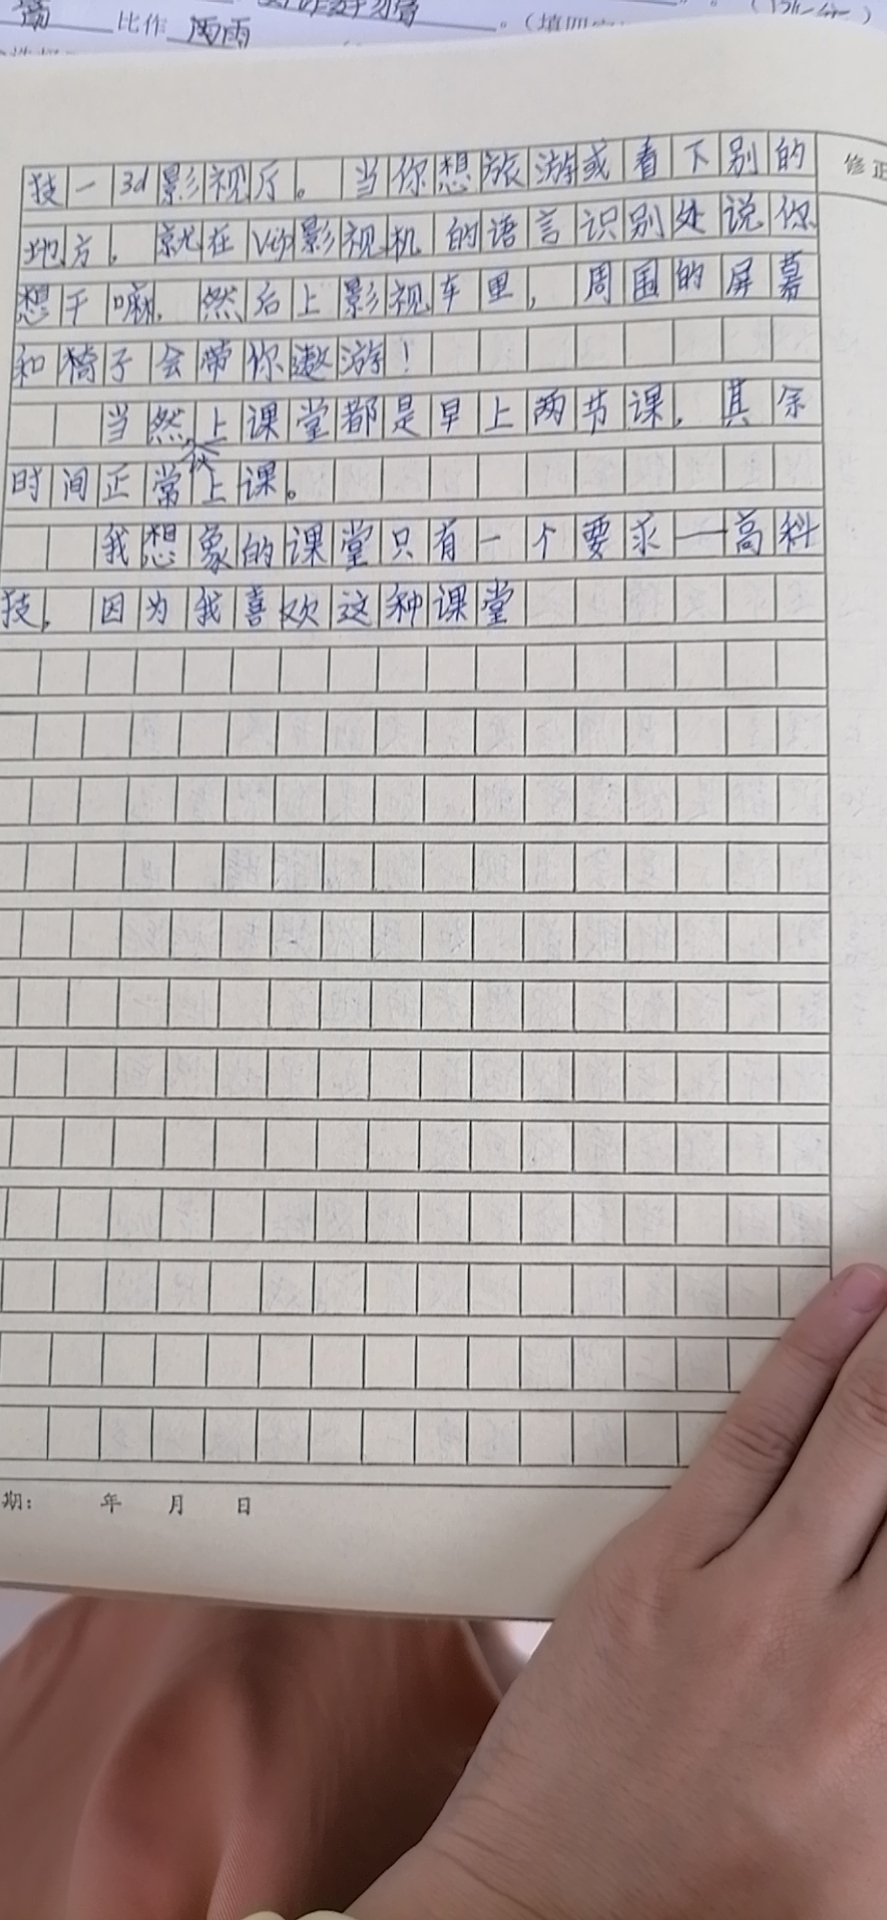 比作 两雨 。（填四字
技一3d影视厅。当你想旅游或看下别的
修正
地方，就在Vr影视机的语言识别处说你
想干嘛，然后上影视车里，周围的屏幕
和椅子会带你遨游！
当然上课堂都是早上两节课，其余
时间正常上课。
我想象的课堂只有一个要求——高科
技，因为我喜欢这种课堂
期： 年 月 日